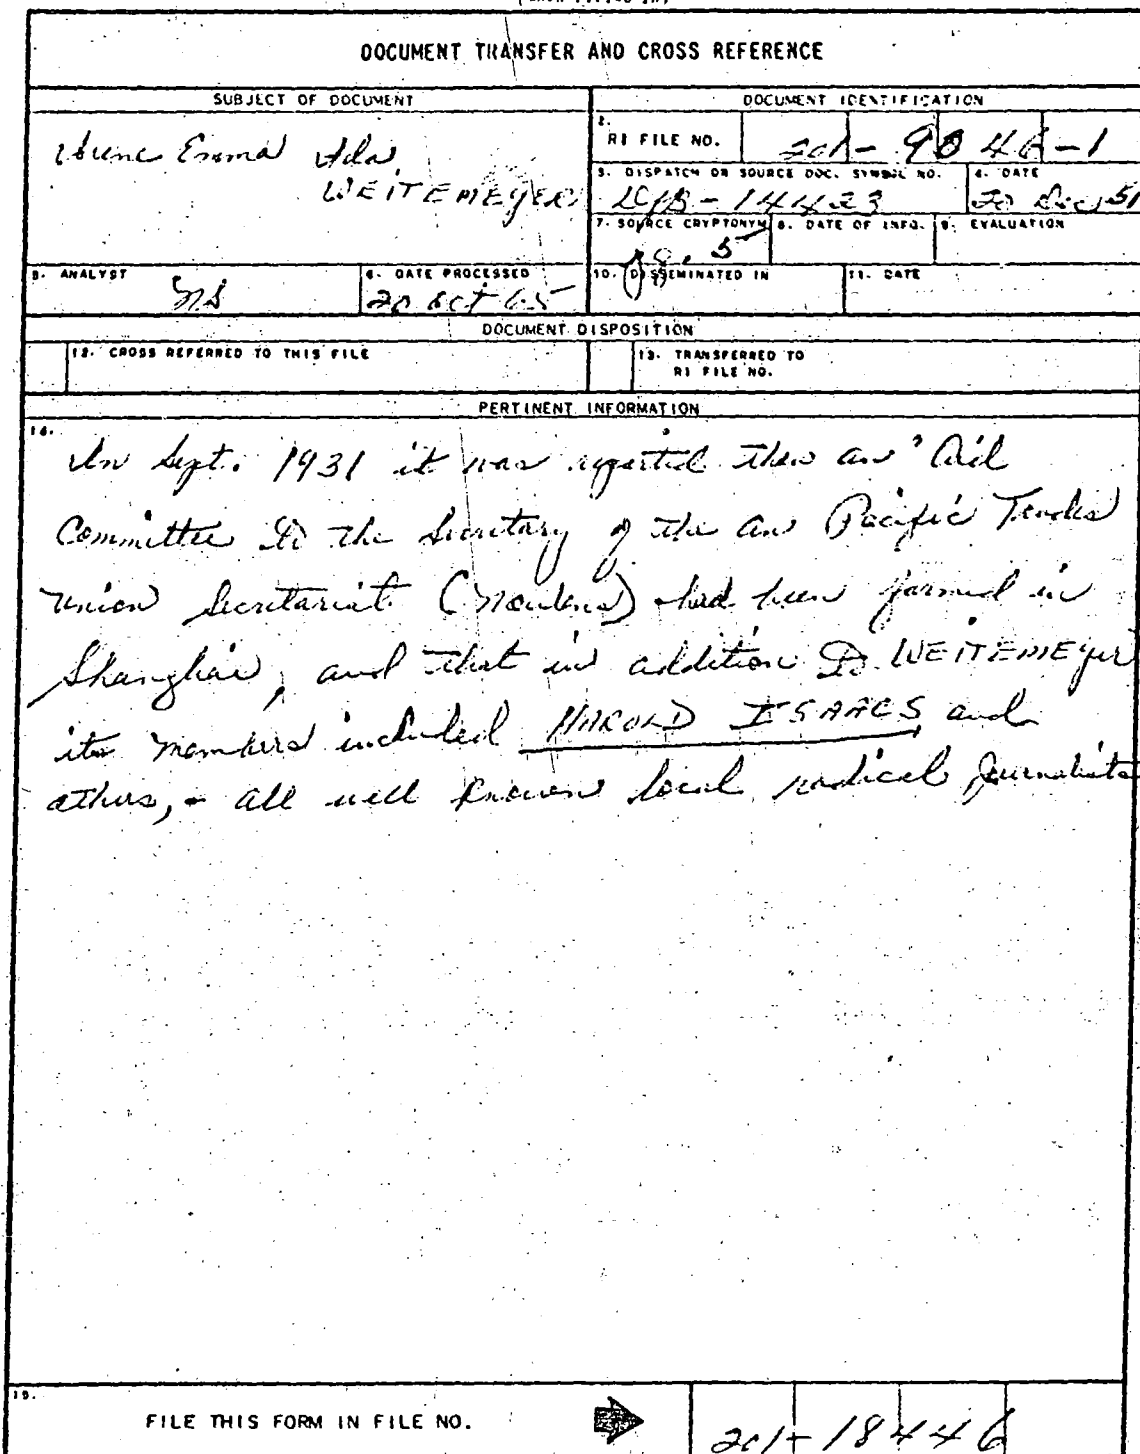 DOCUMENT TRANSFER AND CROSS REFERENCE
SUBJECT OF DOCUMENT
Emma
WEITEMEYER
5. ANALYST
6. DATE PROCESSED
20 Oct 65
DOCUMENT IDENTIFICATION
2.
RI FILE NO.
3. DISPATCH OR SOURCE DOC. SYMBOL NO.
14423
4. DATE
20 Dec 51
7. SOURCE CRYPTONYM
8. DATE OF INFO.
9. EVALUATION
10. DISSEMINATED IN
11. DATE
DOCUMENT DISPOSITION
12. CROSS REFERRED TO THIS FILE
13. TRANSFERRED TO
RI FILE NO.
PERTINENT INFORMATION
14.
In Sept. 1931 it was reported
Committee to the Secretary of the Pacific Trades
Union Secretariat had been formed in
Shanghai, and that in addition to WEITEMEYER
its members included HAROLD ISAACS and
others, - all well known local radical journalists
15.
FILE THIS FORM IN FILE NO.
201-18446